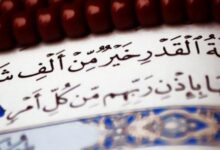 ٱلْقَدْرِ خَيْرٌ مِّنْ أَلْفِ
بِإِذْنِ رَبِّهِم مِّن كُلِّ أَمْرٍ